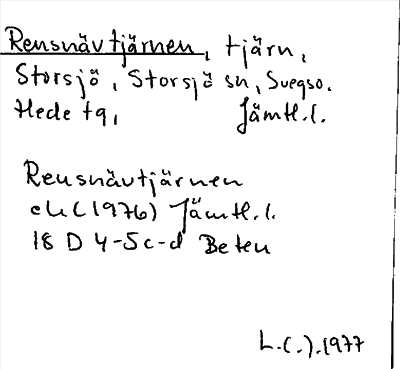 Rensnävtjärnen, tjärn,
Storsjö, Storsjö sn, Svegs o.
Hede tg, Jämtl. l.
Rensnävtjärnen
ek (1976) Jämtl. l.
18 D 4-5 c-d Beten
L.(.).1977